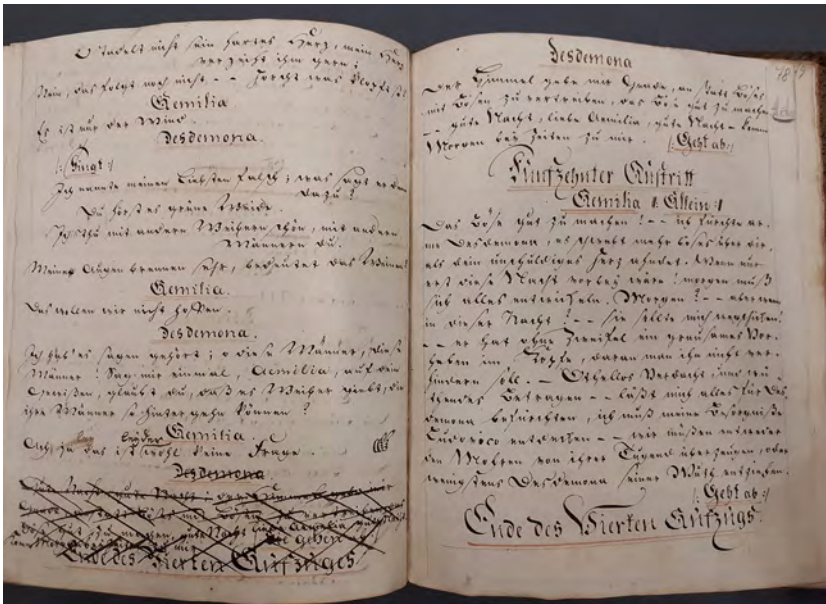 O tadelt nicht sein hartes Herz, mein Herz
verzeiht ihm gern;
Nein, das folgt noch nicht, - - Horcht was klopft ist
Aemilia
Es ist nur der Wind.
Desdemona.
/: Singt :/
Ich nannte meinen Liebsten falsch; was sagt er denn
dazu?
Du hörst es grüne Weide.
Ich thu mit andern Weibern schön, mit andern
Männern du.
Meine Augen brennen sehr, bedeutet das Weinen?
Aemilia.
Das wollen wir nicht hoffen.
Desdemona.
Ich hab' es sagen gehört; o diese Männer, diese
Männer! Sag mir einmal, Aemilia, auf dein
Gewißen, glaubst du, daß es Weiber giebt, die
ihre Männer so hintergehn können?
Aemilia.
leyder
Ach, ja das ist wohl keine Frage.
Desdemona
Gute Nacht, gute Nacht; der Himmel gebe mir
Gnade, anstatt böses mit bösen zu vertreiben, das
Böse gut zu machen, gute Nacht liebe Aemilia gute Nacht
/: Sie gehen
Morgen bey Zeiten zu mir
Ende des Vierten Aufzuges
Desdemona
78
Der Himmel gebe mir Gnade, an statt Böses
mit Bösen zu vertreiben, das Böse gut zu machen
- - gute Nacht, liebe Aemilia, gute Nacht - komm
Morgen bey Zeiten zu mir. /: Geht ab :/
Fünfzehnter Auftritt
Aemilia /: Allein :/
Das Böse gut zu machen! - - ich fürchte ar-
me Desdemona, es schwebt mehr böses über dir,
als dein unschuldiges Herz ahndet. Wenn nur
erst diese Nacht vorbey wäre! morgen muß
sich alles entwickeln, Morgen? - - aber wenn
in dieser Nacht? - - sie sollte mich wegschicken!
- - er hat ohne Zweifel ein grausames Vor-
haben im Kopfe, daran man ihn nicht ver-
hindern soll. - Othellos Verdacht, und wü-
thendes Betragen - - läßt mich alles für Des-
demona befürchten, ich muß meine Besorgniße
Ludovico entdecken - - wir müßen entweder
den Mohren von ihrer Tugend überzeugen, oder
wenigstens Desdemona seiner Wuth entziehen.
/: Geht ab :/
Ende des Vierten Aufzugs.